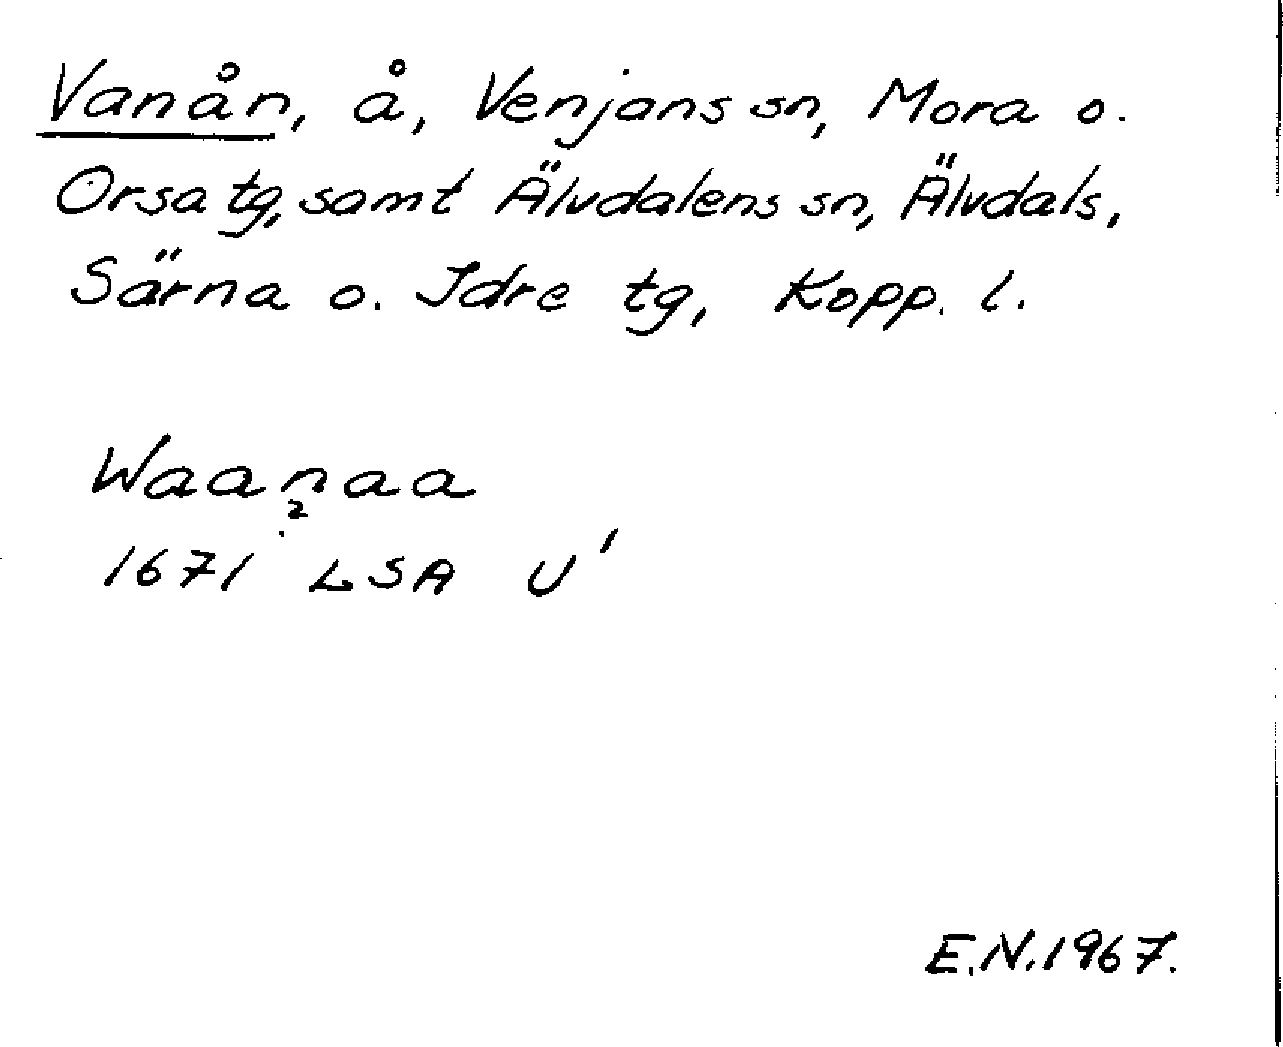 Vanån, å, Venjans sn, Mora o.
Orsa tg, samt Älvdalens sn, Älvdals,
Särna o. Idre tg, Kopp. l.
Waanaa
2
1671 LSA U'
E.N. 1967.